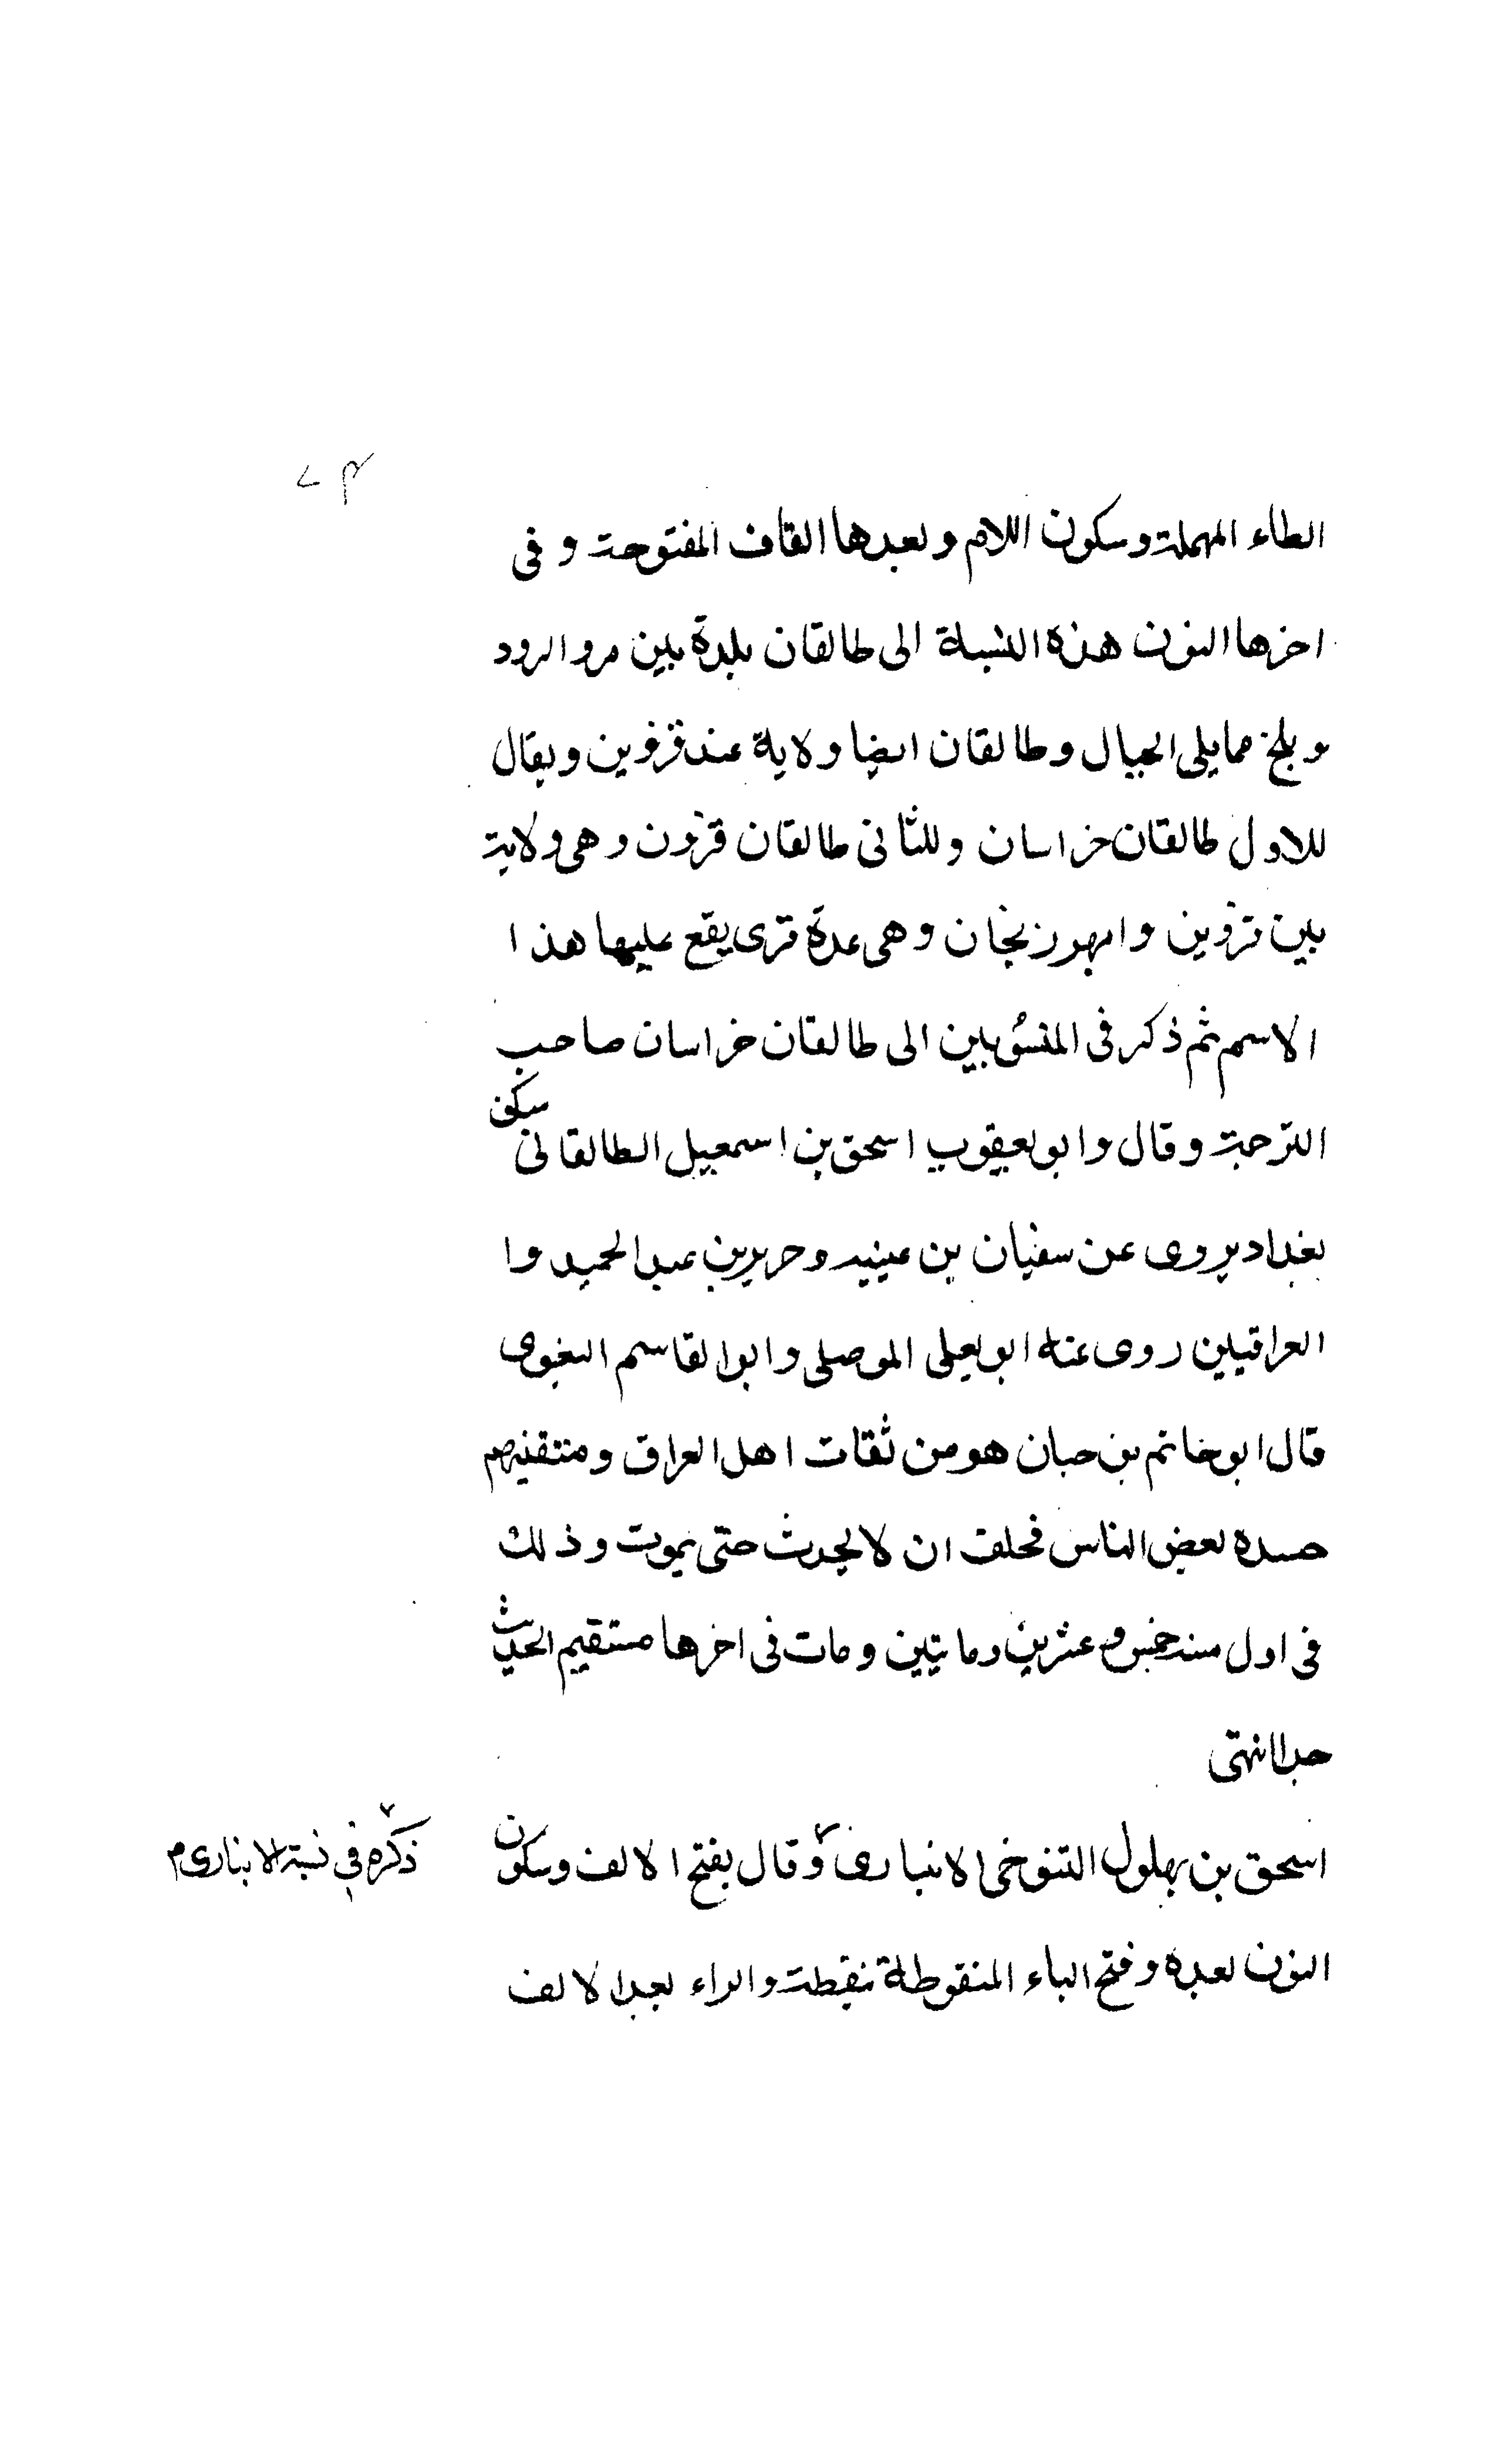 الطاء المهملة وسكون اللام وبعدها القاف المفتوحة وفى
اخرها النون هذه النسبة الى طالقان بلدة بين مرو الرود
وبلخ مما يلى الجبال وطالقان ايضا ولاية عند قزوين ويقال
للاول طالقان خراسان وللثانى طالقان قزون وهى ولاية
بين قزوين وابهر وزنجان وهى عدة قرى يقع عليها هذا
الاسم ثم ذكر فى المنسوبين الى طالقان خراسان صاحب
الترجمة وقال وابو يعقوب اسحق بن اسمعيل الطالقانى سكن
بغداد يروى عن سفيان بن عيينه وجرير بن عبد الحميد وا
العراقيين روى عنه ابو يعلى الموصلى وابو القاسم البغوى
قال ابو خاتم بن حبان هو من ثقات اهل العراق ومتقنيهم
حسده بعض الناس فحلف ان لا يحدث حتى يموت وذلك
فى اول سنة خمس وعشرين وماتيين ومات فى اخرها مستقيم الحديث
جدا انتهى
اسحق بن بهلول التنوخى الانبارى وقال بفتح الالف وسكون
ذكره في نسبة الانبارى م
النون بعده وفتح الباء المنقوطة بنقطة والراء بعد الالف